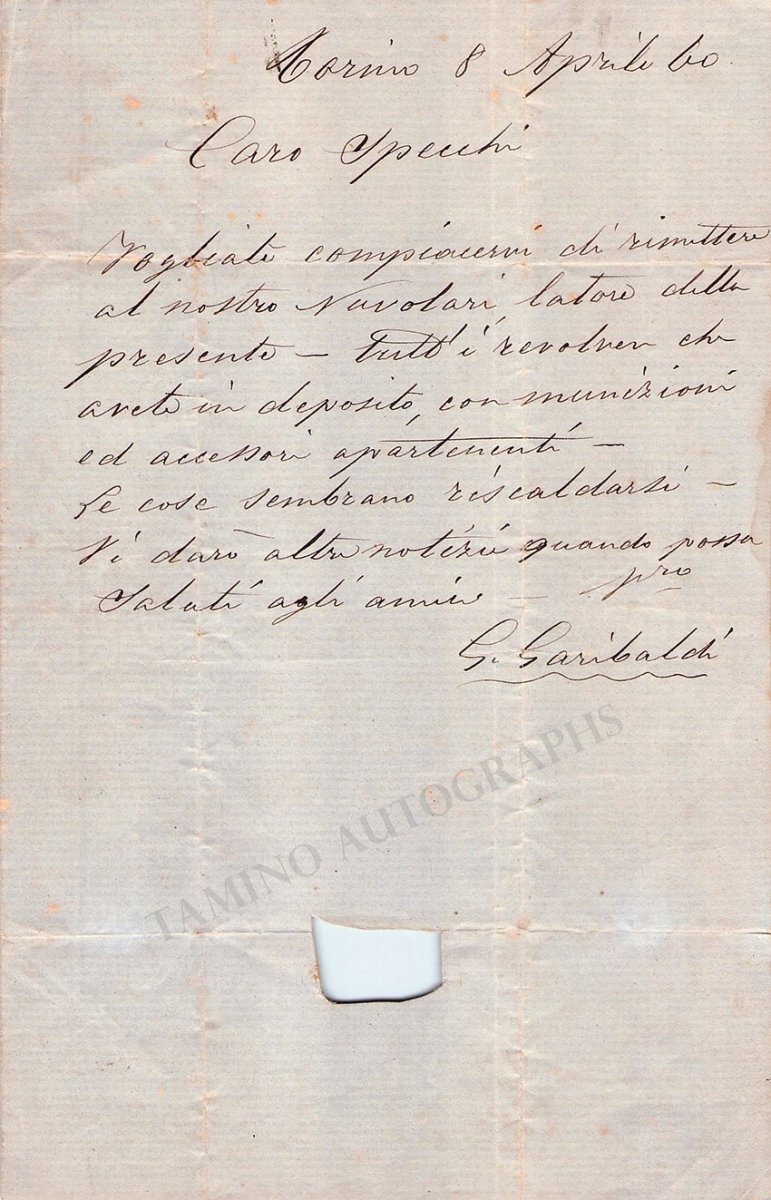 Torino 8 Aprile 60
Caro Specchi
Vogliate compiacervi di rimettere
al nostro Nuvolari, latore della
presente – tutt'i revolver che
avete in deposito, con munizioni
ed accessori apartenenti –
Le cose sembrano riscaldarsi –
Vi darò altre notizie quando possa
Saluti agli amici – pro
G. Garibaldi
TAMINO AUTOGRAPHS